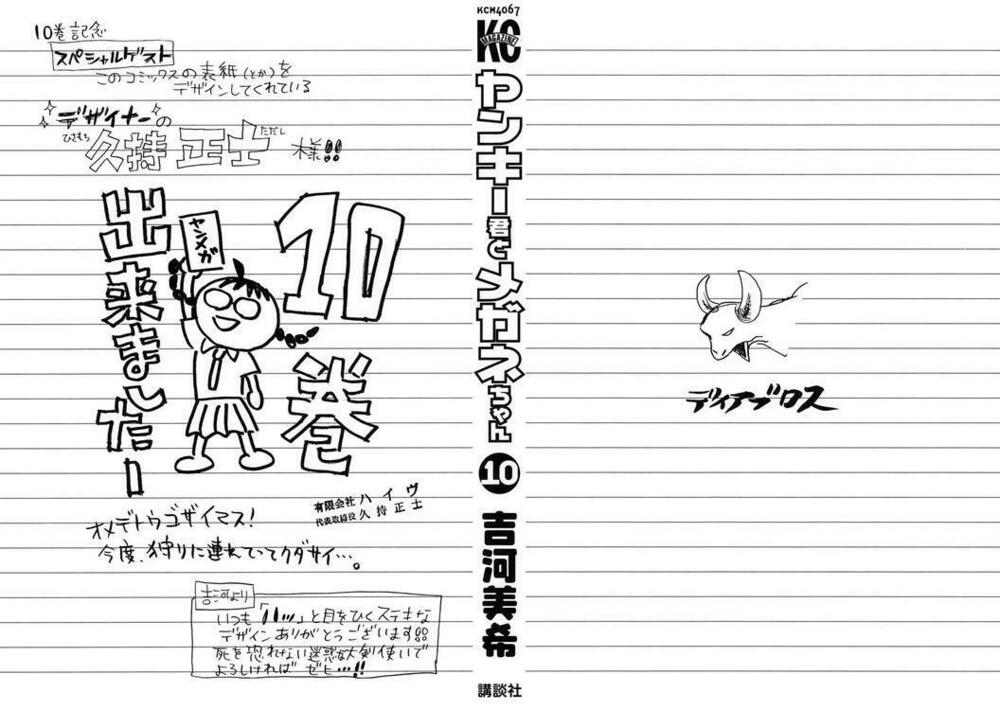 10巻記念
スペシャルゲスト
このコミックスの表紙(とか)を
デザインしてくれている
デザイナーの
ひさもち ただし
久持 正士 様!!
10巻
出来ましたー
ヤンメガ
有限会社 ハイヴ
代表取締役 久持正士
オメデトウゴザイマス!
今度、狩りに連れていってクダサイ…。
吉河より
いつも「ハッ」と目をひくステキな
デザインありがとうございます!!
死を恐れない迷惑な大剣使いで
よろしければ ゼヒ…!!
KCM4067
KC
MAGAZINE
ヤンキー君とメガネちゃん
10
吉河美希
講談社
ディアブロス